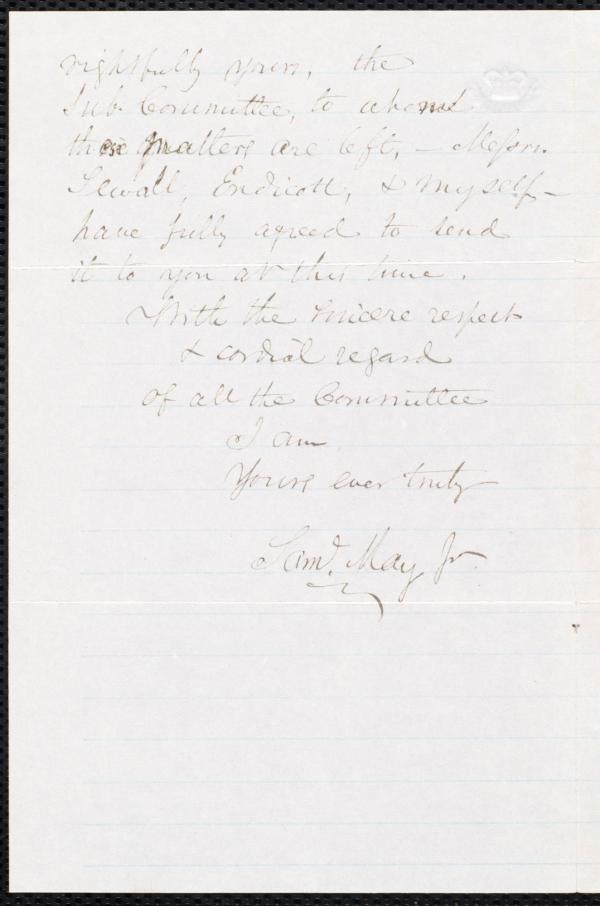 rightfully yours, the
Sub. Committee, to whom
these matters are left, — Messrs.
Sewall, Endicott, & myself —
have fully agreed to send
it to you at this time.
With the sincere respect
& cordial regard
of all the Committee
I am
Yours ever truly
Saml. May Jr.